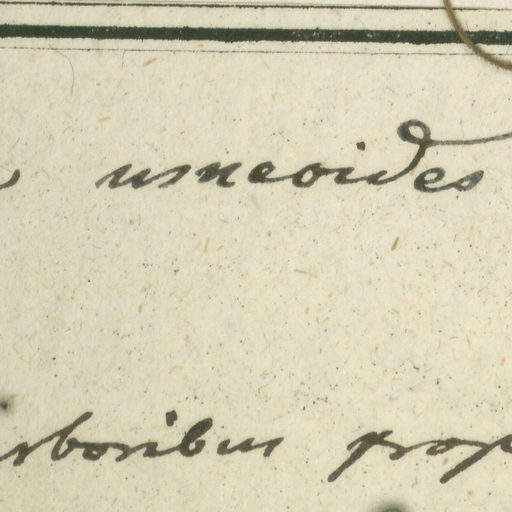 usneoides
arboribus prop